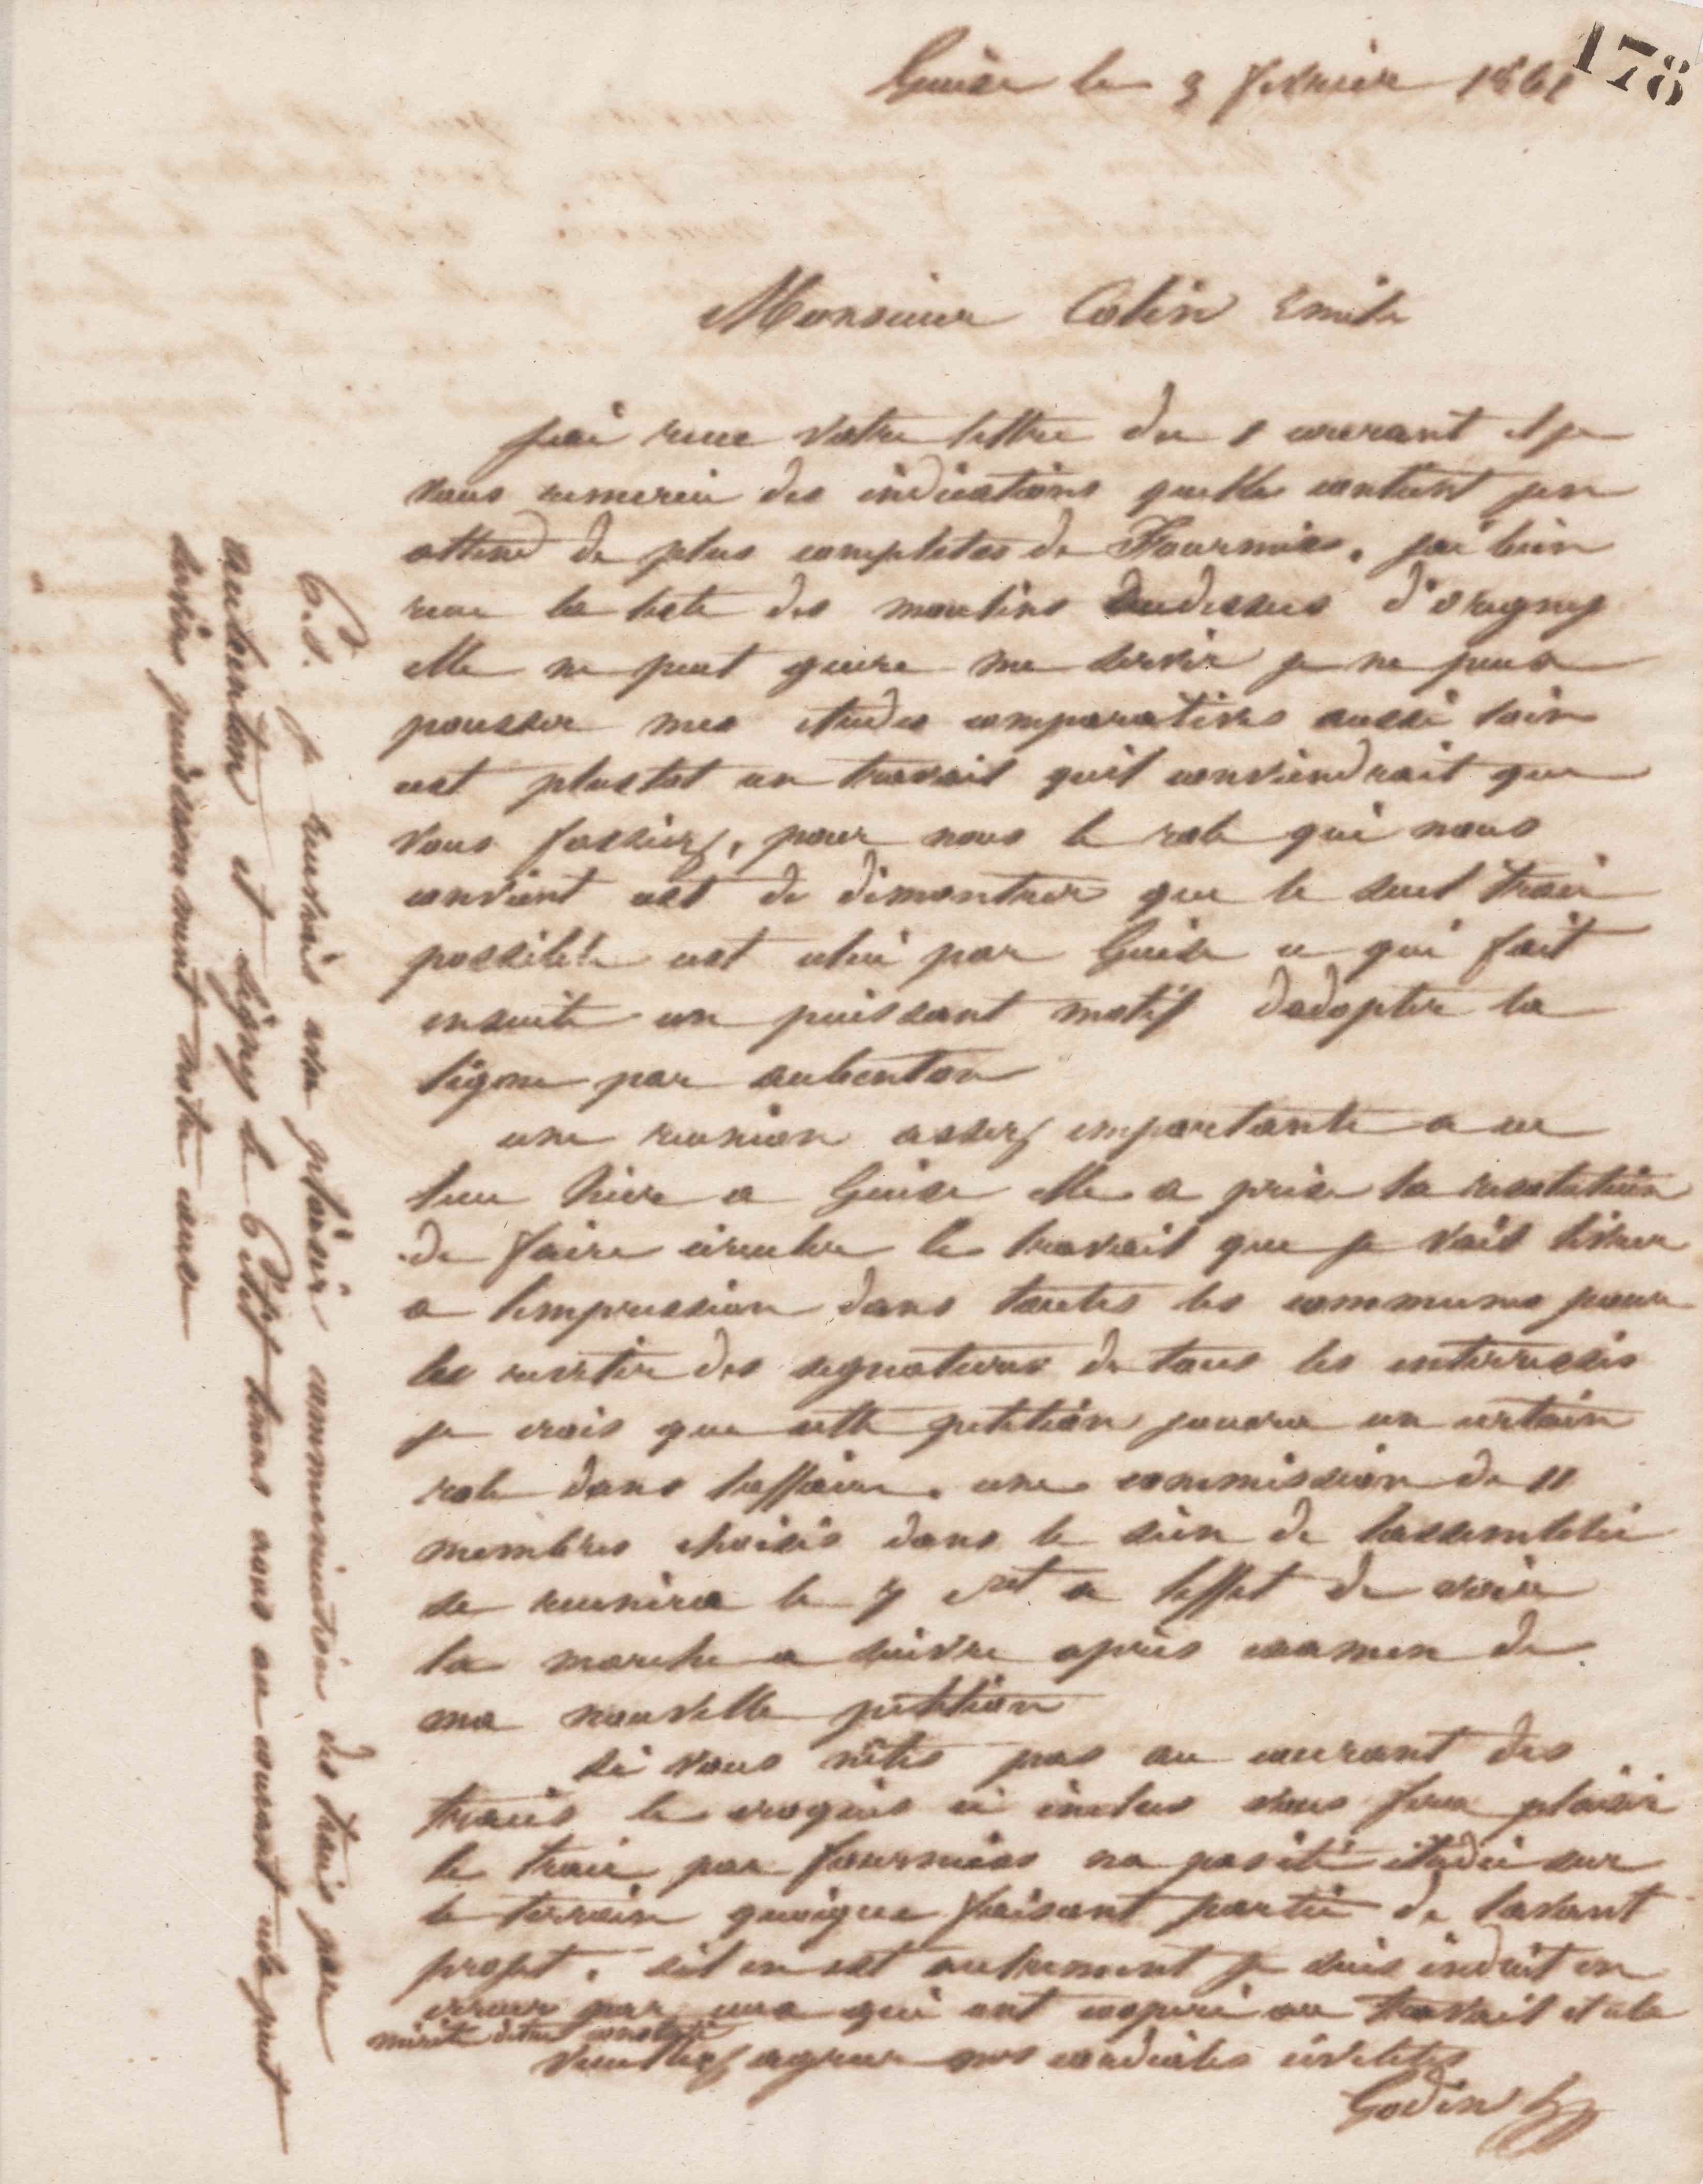 178
Guise le 3 fevrier 1861
Monsieur Colin Emile
jai recue votre lettre du 1 courant et je
vous remercie des indications quelle contient jen
attend de plus completes de Fourmies. jai bien
recue la liste des moulins audessus d'origny
elle ne peut guere me servir je ne peux
pousser mes etudes comparatives aussi loin
cest plustot un travail quil conviendrait que
vous fassiez, pour nous le role qui nous
convient est de démontrer que le seul tracé
possible est celui par Guise ce qui fait
ensuite un puissant motif dadopter la
ligne par aubenton
une reunion assez importante a eu
lieu hier a Guise elle a prise la resolution
de faire circuler le travail que je vais livrer
a limpression dans toutes les communes pour
les revetir des signatures de tous les interressés
je crois que cette petition jouera un certain
role dans laffaire. une commission de 11
membres choisis dans le sein de lassemblée
se reunira le 7 ct a leffet de voir
la marche a suivre après examen de
ma nouvelle petition
si vous nètes pas au courant des
tracés le croquis ci inclus vous fera plaisir
le tracé par fourmies na pas été étudié sur
le terrain quoique faisant partie de lavant
projet. sil en est autrement je suis induit en
erreur par ceux qui ont coopéré au travail et cela
mérite detre constaté
veuillez agreer mes cordiales civilités
Godin
P.S. je recevrais avec plaisir communication des tracés par
aubenton et signy le Petit tenons nous au courant cela peut
servir puissamment notre cause